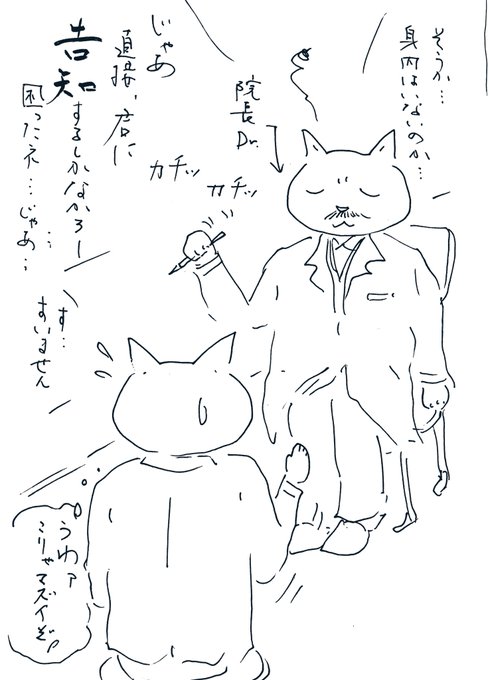 そうか…
身内はいないのか…
院長
Dr.
カチッ
カチッ
じゃあ
直接、君に
告知するしかなかろー
困ったネ…じゃあ…
す…
すいません
うわァ
こりゃマズイぞ